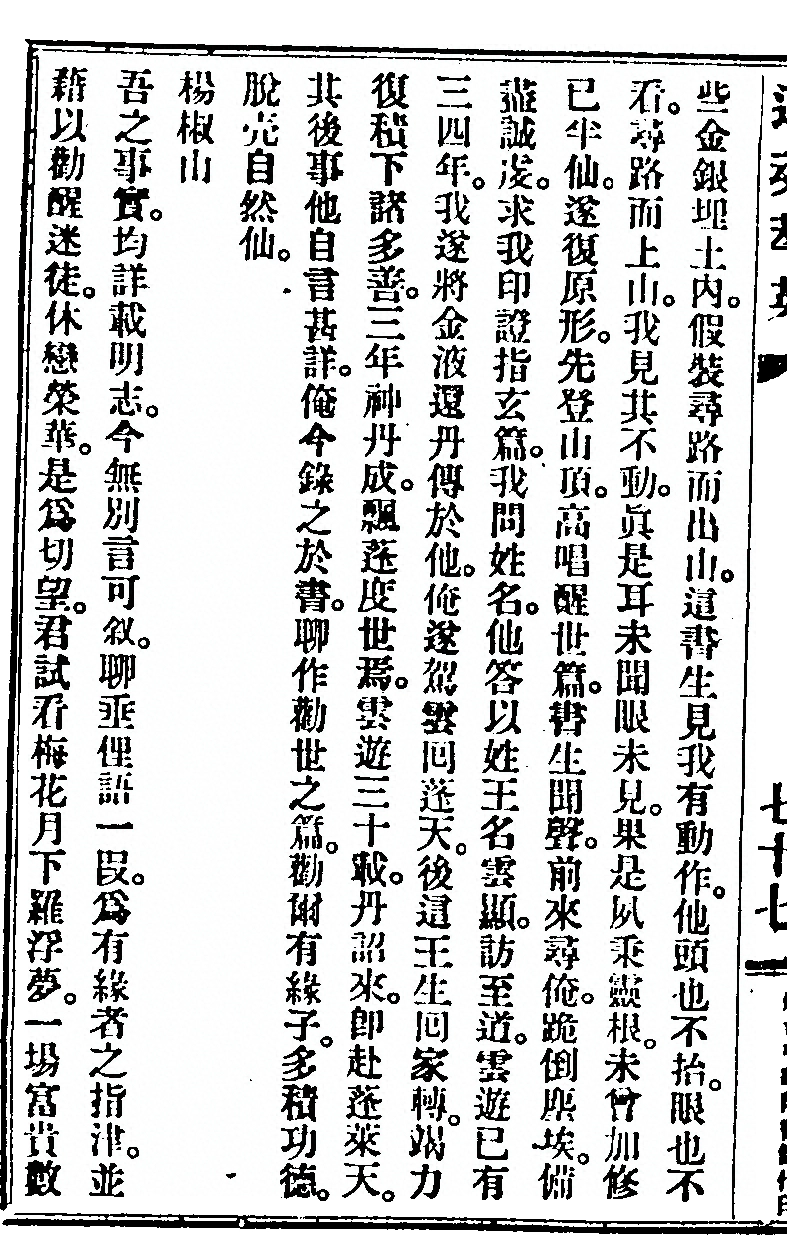 七十七
些金銀埋土內。假裝尋路而出山。這書生見我有動作。他頭也不抬。眼也不
看。尋路而上山。我見其不動。眞是耳未聞眼未見。果是夙秉靈根。未曾加修
已半仙。遂復原形。先登山頂。高唱醒世篇。書生聞聲。前來尋俺。跪倒塵埃。備
盡誠虔。求我印證指玄篇。我問姓名。他答以姓王名雲顯。訪至道。雲遊已有
三四年。我遂將金液還丹傳於他。俺遂駕雲回蓬天。後這王生回家轉。竭力
復積下諸多善。三年神丹成。飄蓬度世焉。雲遊三十載。丹詔來。卽赴蓬萊天。
其後事他自言甚詳。俺今錄之於書。聊作勸世之篇。勸爾有緣子。多積功德。
脫壳自然仙。
楊椒山
吾之事實。均詳載明志。今無別言可叙。聊垂俚語一段。爲有緣者之指津。並
藉以勸醒迷徒。休戀榮華。是爲切望。君試看梅花月下羅浮夢。一場富貴數